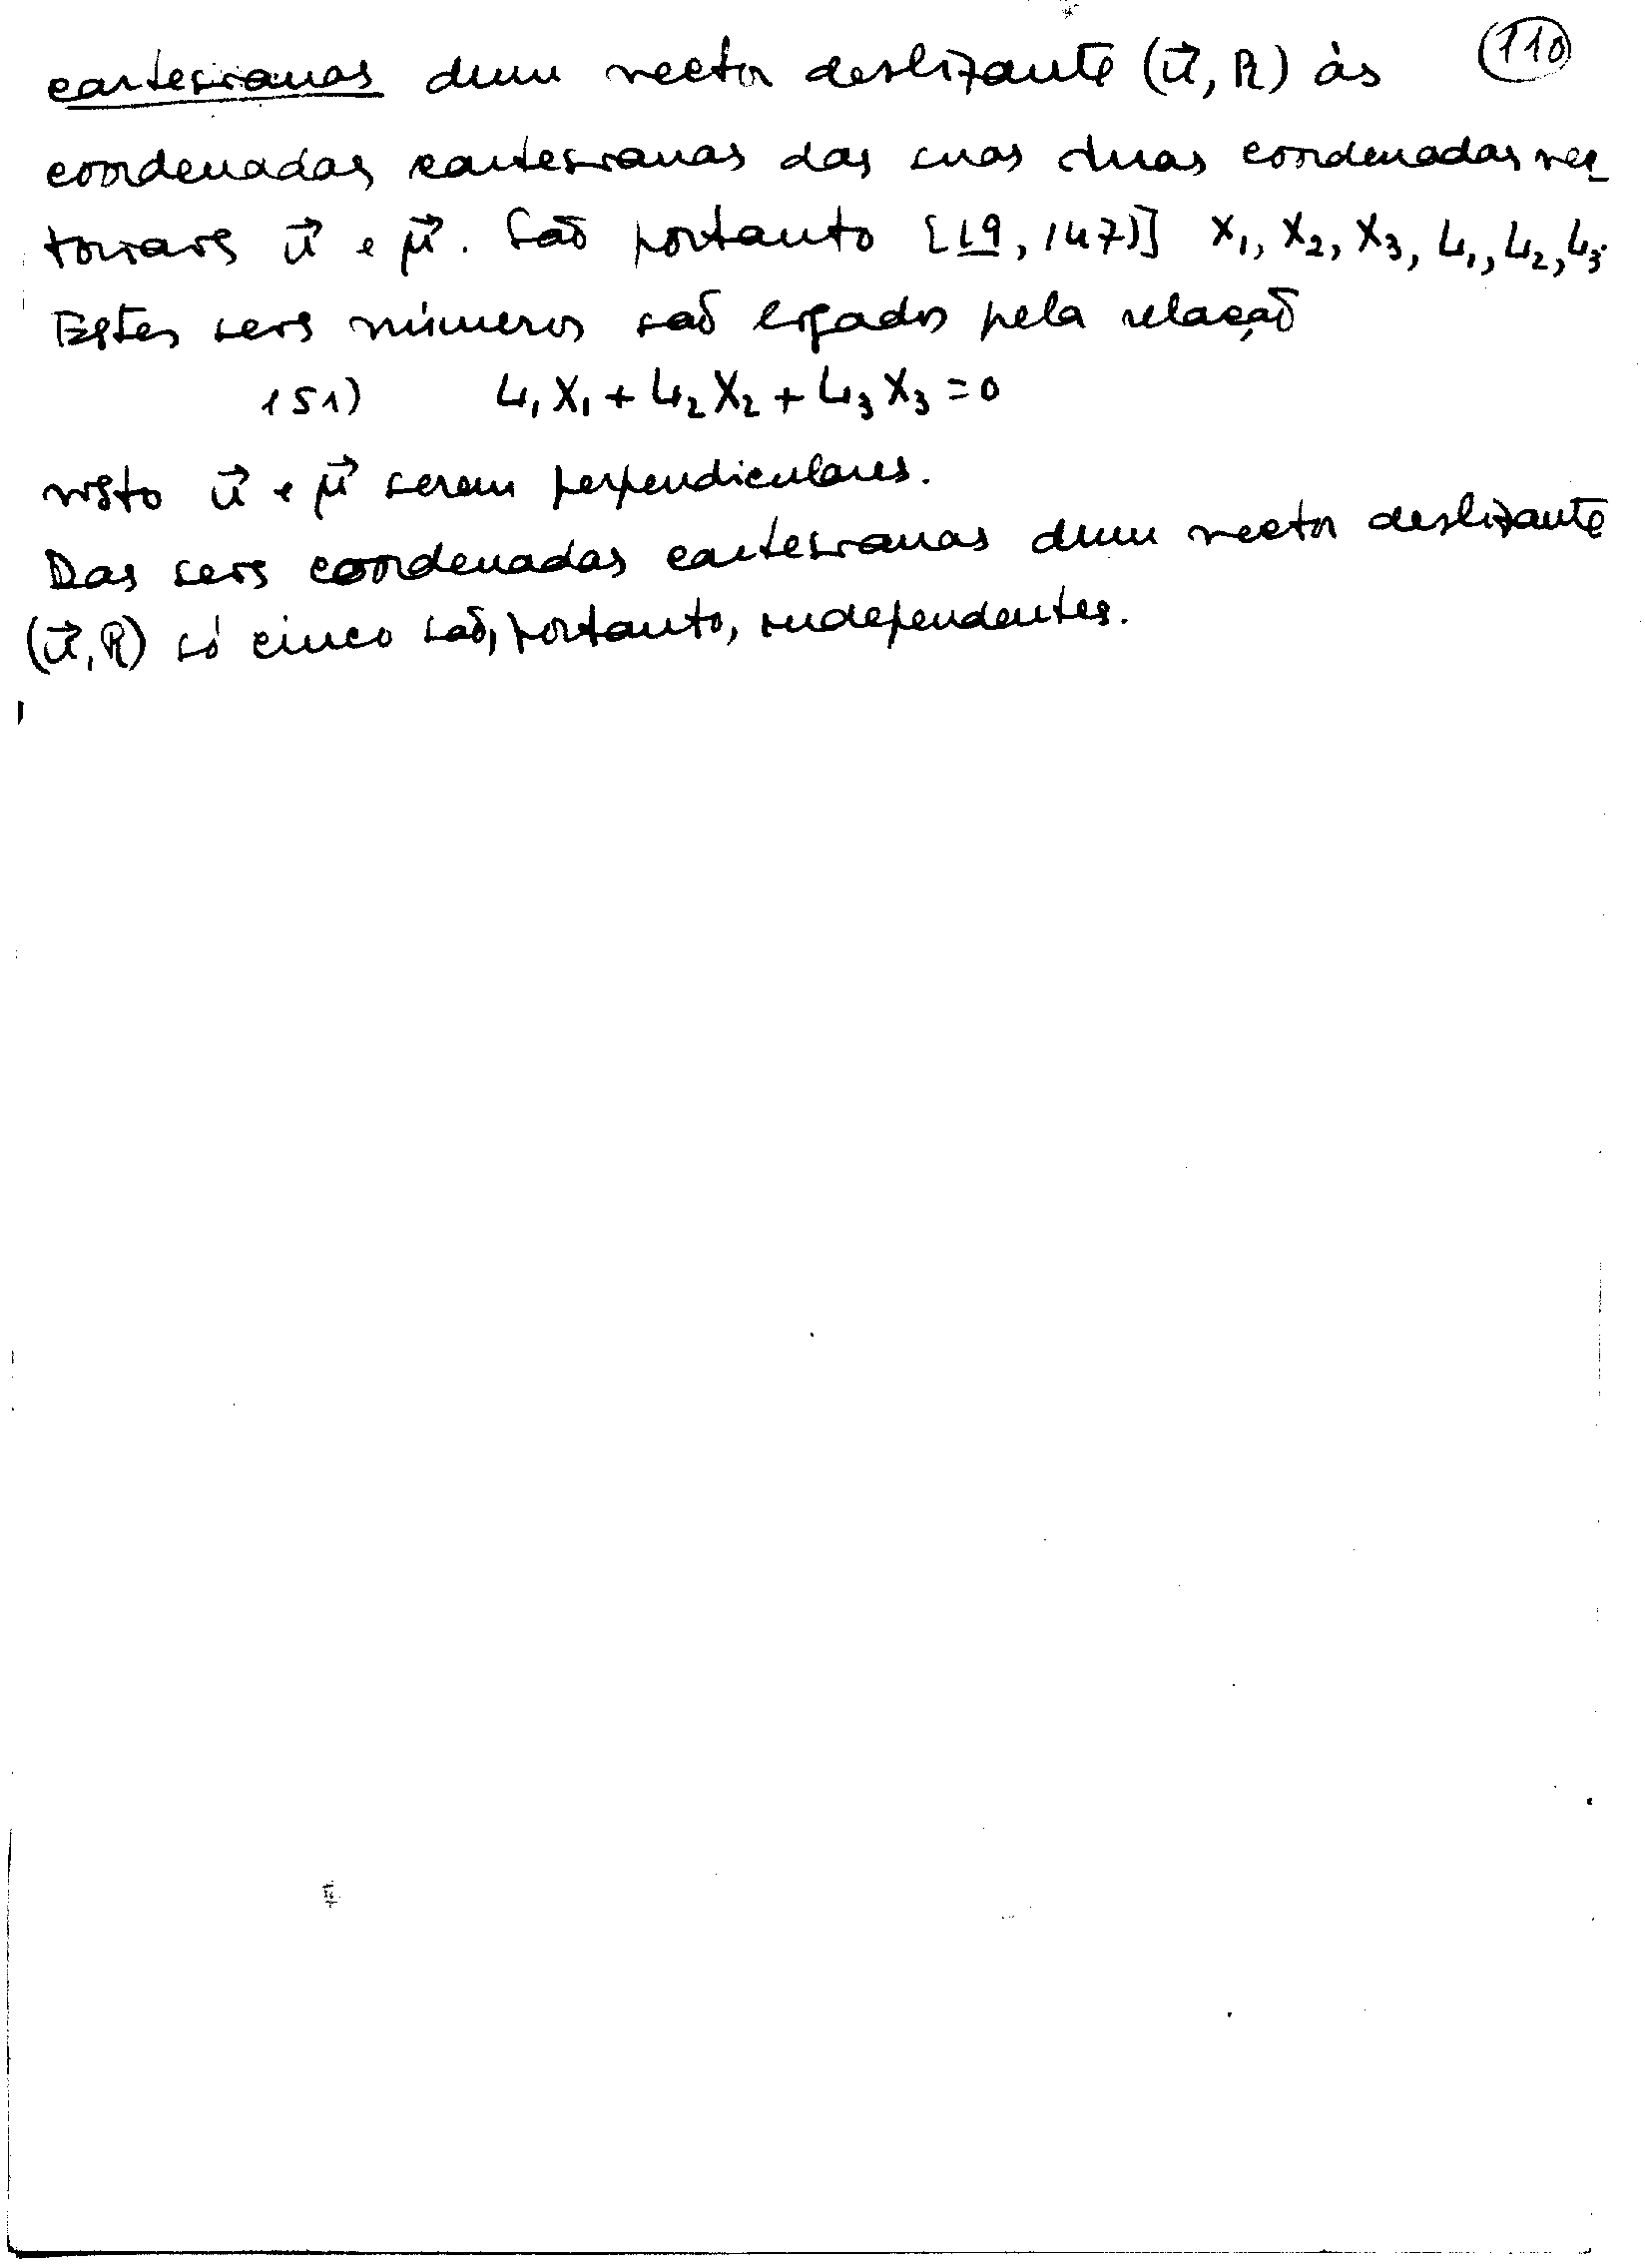 110
cartesianas dum vector deslizante (u⃗, R) às
coordenadas cartesianas das suas duas coordenadas vec_
toriais u⃗ e μ⃗. São portanto [19, 147)] X₁, X₂, X₃, L₁, L₂, L₃.
Estes seis números são ligados pela relação
151) L₁X₁ + L₂X₂ + L₃X₃ = 0
visto u⃗ e μ⃗ serem perpendiculares.
Das seis coordenadas cartesianas dum vector deslizante
(u⃗, R) só cinco são, portanto, independentes.